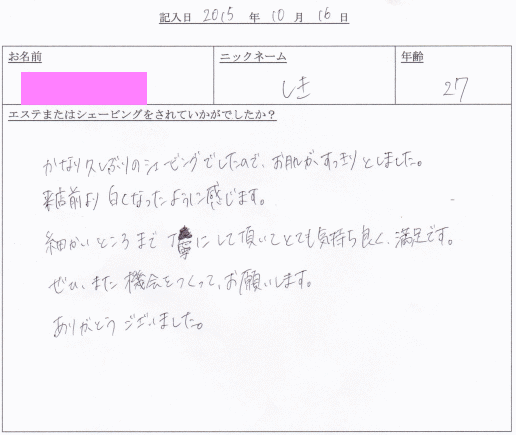 記入日 2015 年 10 月 16 日
お名前 ニックネーム 年齢
しき 27
エステまたはシェービングをされていかがでしたか？
かなり久しぶりのシェービングでしたので、お肌がすっきりとしました。
来店前より白くなったように感じます。
細かいところまで丁寧にして頂いてとても気持ち良く、満足です。
ぜひ、また機会をつくって、お願いします。
ありがとうございました。